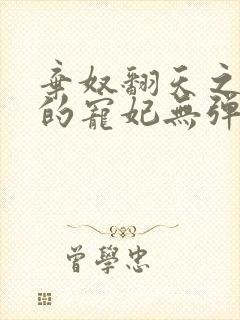 棄奴翻天之
的寵妃無彈
曾學忠